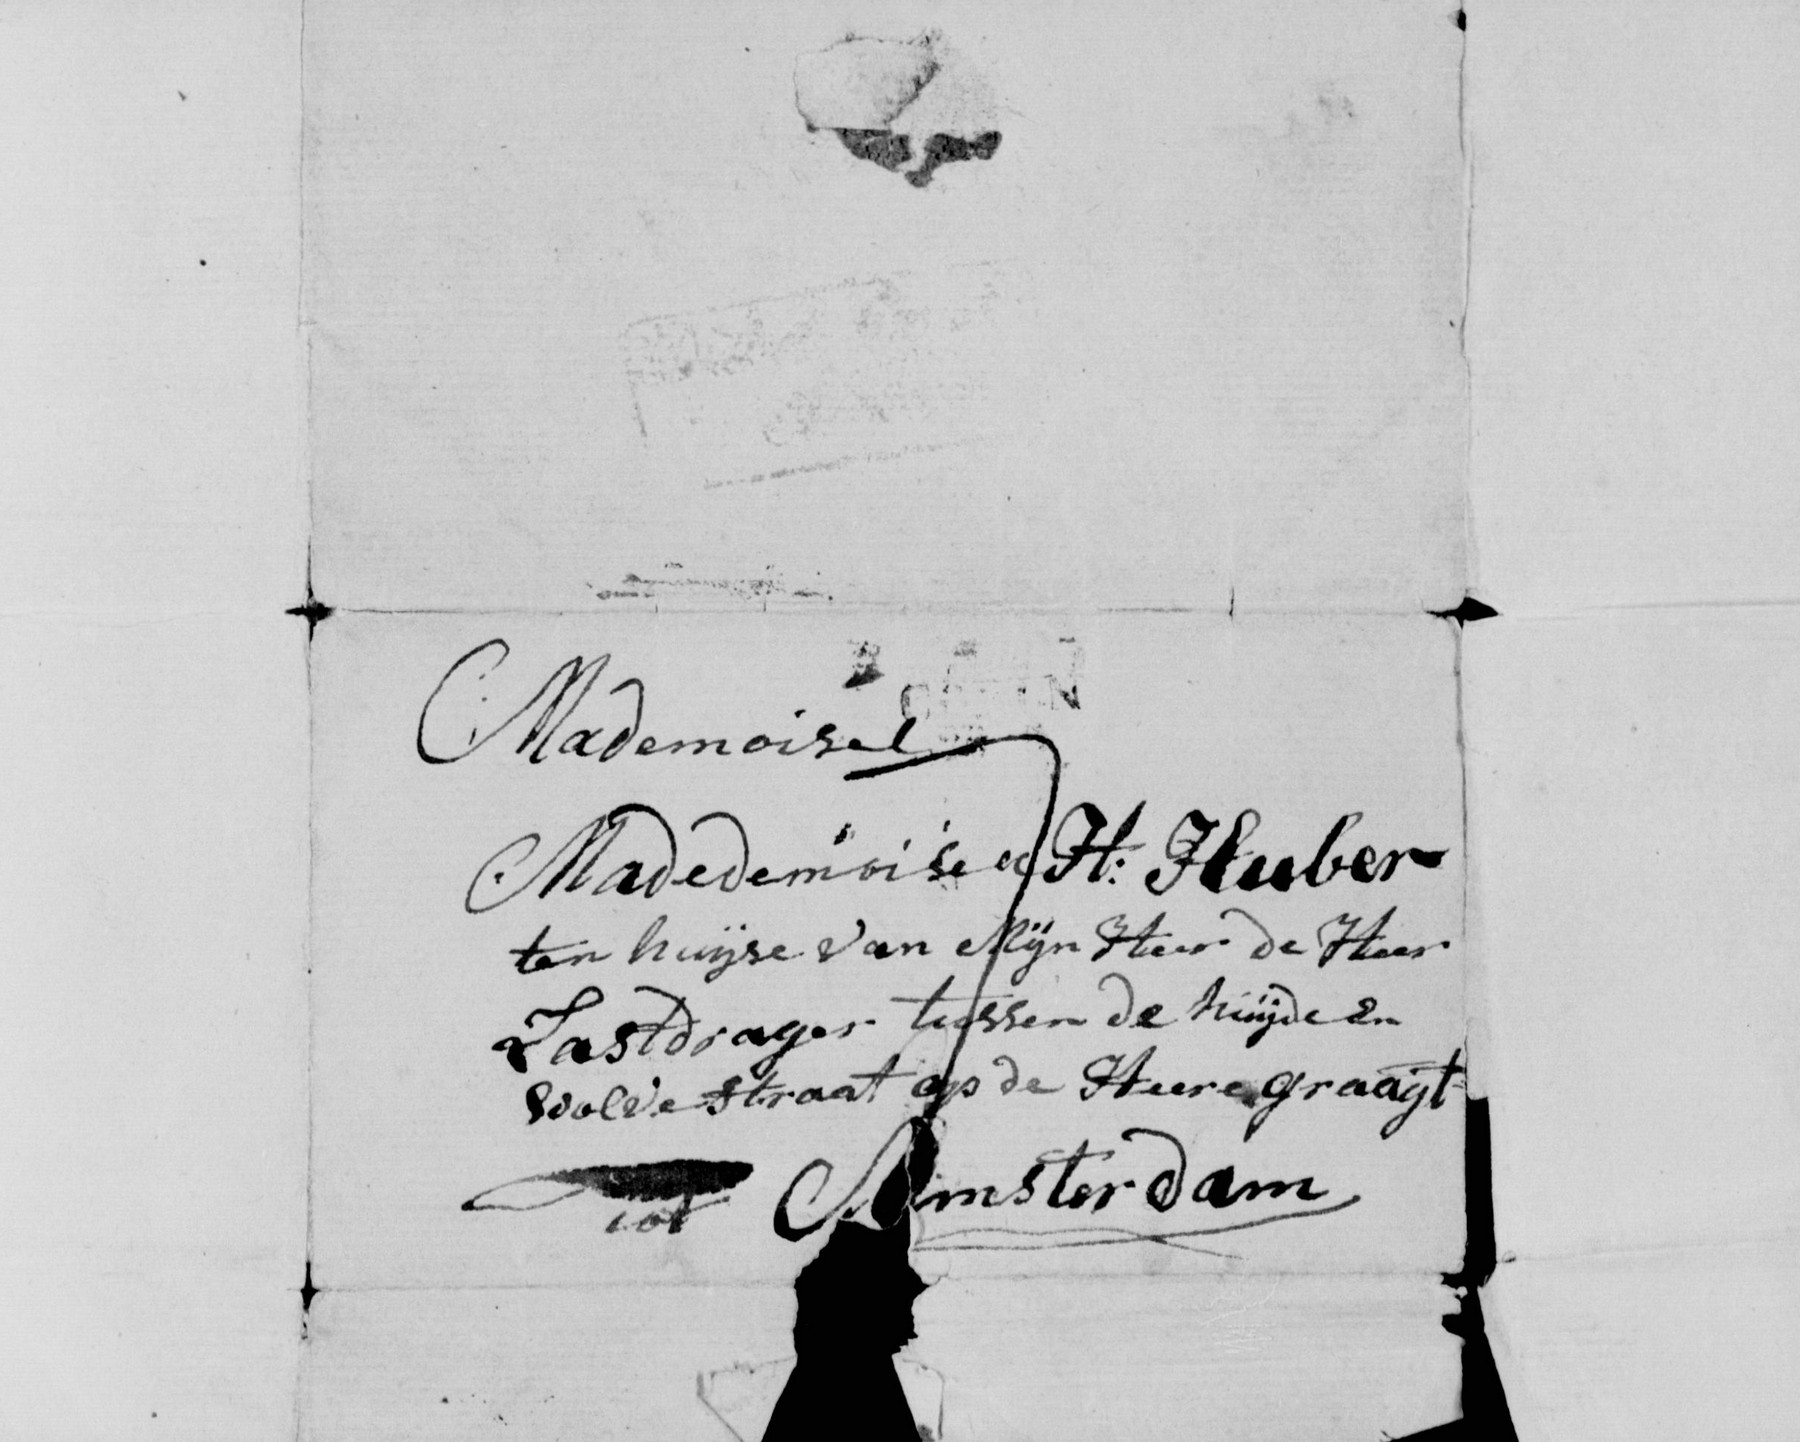 Mademoisel
Madedemoisel H: Huber
ten huijse van Mijn Heer de Heer
Lastdrager tussen de huijde en
wolve straat op de Heere graagt
tot Amsterdam